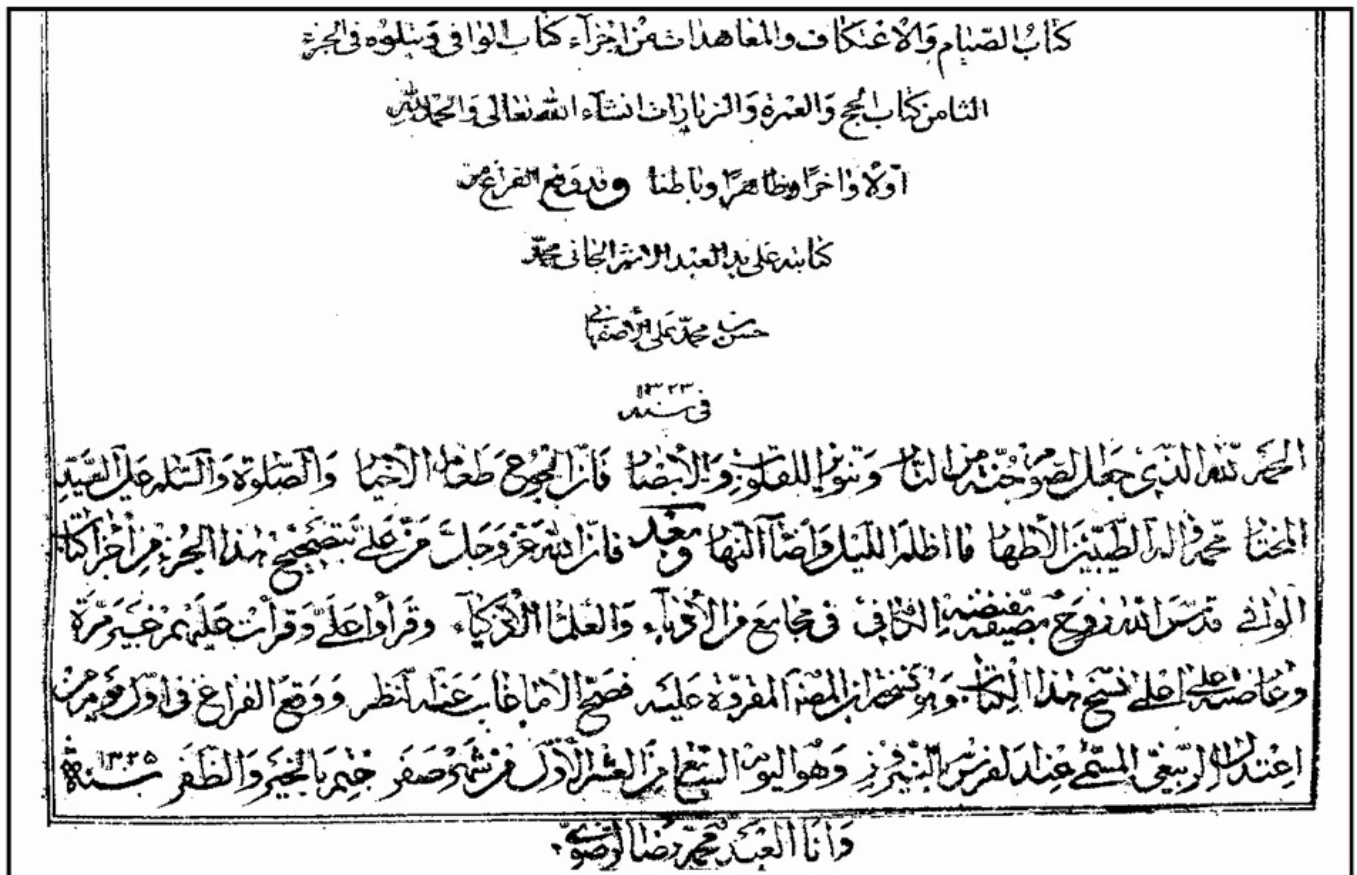 كتاب الصيام والاعتكاف والمعاهدات من اجزاء كتاب الوافي ويتلوه في الجزء
الثامن كتاب الحج والعمرة والزيارات انشاء الله تعالى والحمد لله
اولا واخرا وظاهرا وباطنا وقد وقع الفراغ من
كتابته على يد العبد الاثم الجاني محمد
حسن بن محمد علي الاصفهاني
في سنه ١٣٢٣
الحمد لله الذي جعل الصوم جنة من النار وتنويرا للقلوب والابصار فان الجوع طعام الاخيار والصلوة والسلم على السيد
المختار محمد واله الطيبين الاطهار ما اظلم الليل واضاء النهار وبعد فان الله عز وجل من علي بتصحيح هذا الجزء من اجزاء كتاب
الوافي قدس الله روح مصنفه الفيض الكافي في مجامع من الأدباء والعلماء الأذكياء وقرأوا علي وقرأت عليهم غير مرة
وعارضته على اعلى نسخ هذا الكتاب وهو نسخة المصنف المقروة عليه فصح الا ما غاب عنه النظر ووقع الفراغ في اول يوم من
اعتدال الربيعي المسمى عند الفرس بالنيروز وهو اليوم السابع من العشر الأول من شهر صفر ختم بالخير والظفر سنة ١٣٢٥
وانا العبد محمد رضا الرضوي